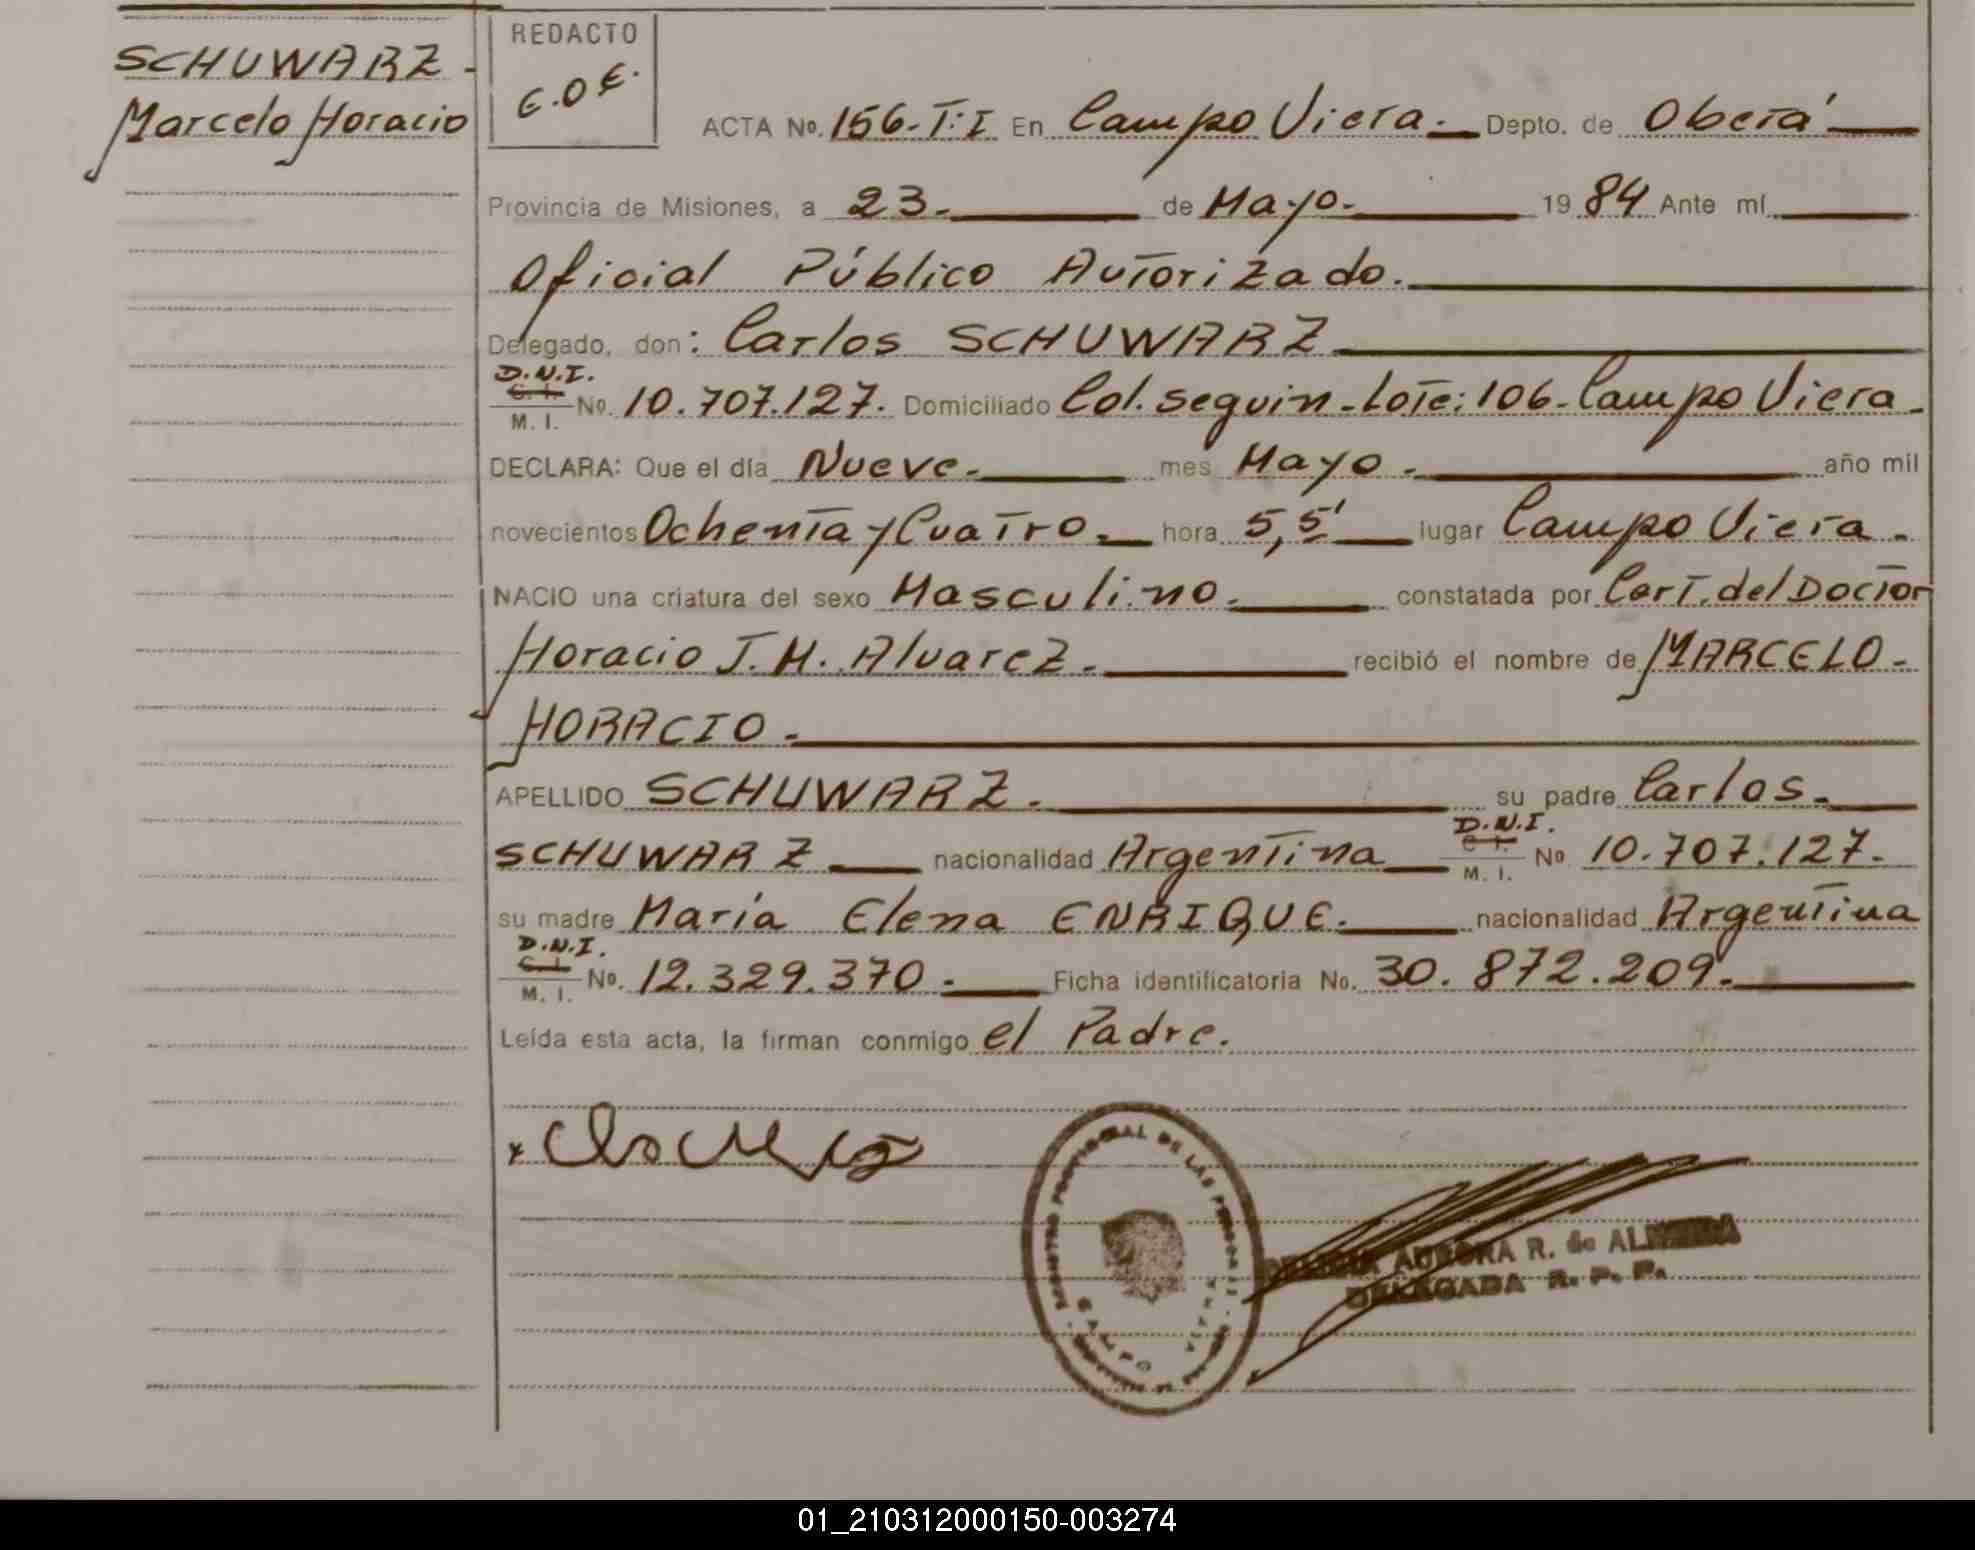 SCHUWARZ.
Marcelo Horacio
REDACTO
E.O.E.
ACTA No. 156-T:I En Campo Viera. Depto. de Oberá
Provincia de Misiones, a 23. de Mayo. 1984 Ante mí
Oficial Público Autorizado.
Delegado, don: Carlos SCHUWARZ
D.N.I.
C. I.
M. I.
No. 10.707.127. Domiciliado Col. Seguin-Lote: 106-Campo Viera.
DECLARA: Que el día Nueve. mes Mayo. año mil
novecientos Ochenta y Cuatro. hora 5,5' lugar Campo Viera.
NACIO una criatura del sexo Masculino. constatada por Cert. del Doctor
Horacio J.M. Alvarez. recibió el nombre de MARCELO-
HORACIO.
APELLIDO SCHUWARZ. su padre Carlos.
D.N.I.
SCHUWARZ nacionalidad Argentina C. I. No 10.707.127.
M. I.
su madre María Elena ENRIQUE. nacionalidad Argentina
D.N.I.
C. I.
M. I.
No. 12.329.370. Ficha identificatoria No. 30.872.209.
Leída esta acta, la firman conmigo el Padre.
PROVINCIAL DE LAS PERSONAS
CAMPO VIERA
AURORA R. de ALMEIDA
DELEGADA R. P. P.
01_210312000150-003274